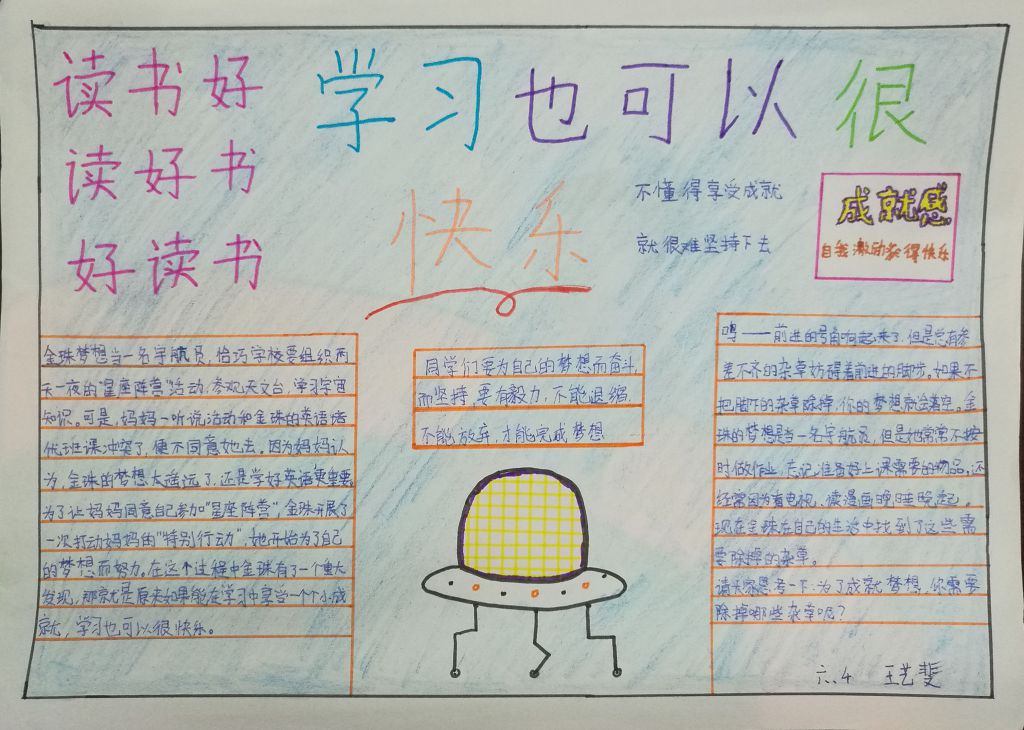 读书好
读好书
好读书
学习也可以很
快乐
不懂得享受成就
就很难坚持下去
成就感
自我激励获得快乐
金珠梦想当一名宇航员,恰巧学校要组织两
天一夜的"星座阵营"活动,参观天文台,学习宇宙
知识。可是,妈妈一听说活动和金珠的英语培
优班课冲突了,便不同意她去。因为妈妈认
为,金珠的梦想太遥远了,还是学好英语更重要
为了让妈妈同意自己参加"星座阵营",金珠开展了
一次打动妈妈的"特别行动",她开始为了自己
的梦想而努力。在这个过程中金珠有了一个重大
发现,那就是原来如果能在学习中享受一个个小成
就,学习也可以很快乐。
同学们要为自己的梦想而奋斗
而坚持,要有毅力,不能退缩,
不能放弃,才能完成梦想
呜——前进的号角响起来了,但是总有参
差不齐的杂草妨碍着前进的脚步。如果不
把脚下的杂草除掉,你的梦想就会落空。金
珠的梦想是当一名宇航员,但是她常常不按
时做作业,忘记准备好上课需要的物品,还
经常因为看电视、读漫画晚睡晚起。
现在金珠在自己的生活中找到了这些需
要除掉的杂草。
请大家思考一下:为了成就梦想,你需要
除掉哪些杂草呢?
六.4 王艺斐